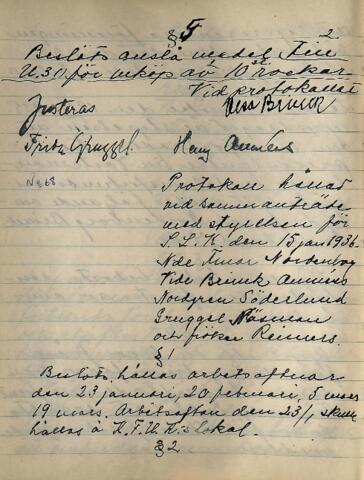 § 5
2
Beslöts anslå medel till
U.30 för inköp av 10 st rockar.
Vid protokollet
Justeras
Brinck
Fritz Gruggel.
Henry
No 68
Protokoll hållet
vid sammanträde
med styrelsen för
S.S.K. den 15 jan 1936.
Nde Nordenbog
Vide Brink Annérs
Nordgren Söderlund
Gruggel Näsman
och fröken Reiners.
§ 1
Beslöts hållas arbetsaftnar
den 23 januari, 20 februari, 5 mars
19 mars. Arbetsafton den 23/1 skulle
hållas å K.F.U.K:s lokal.
§ 2